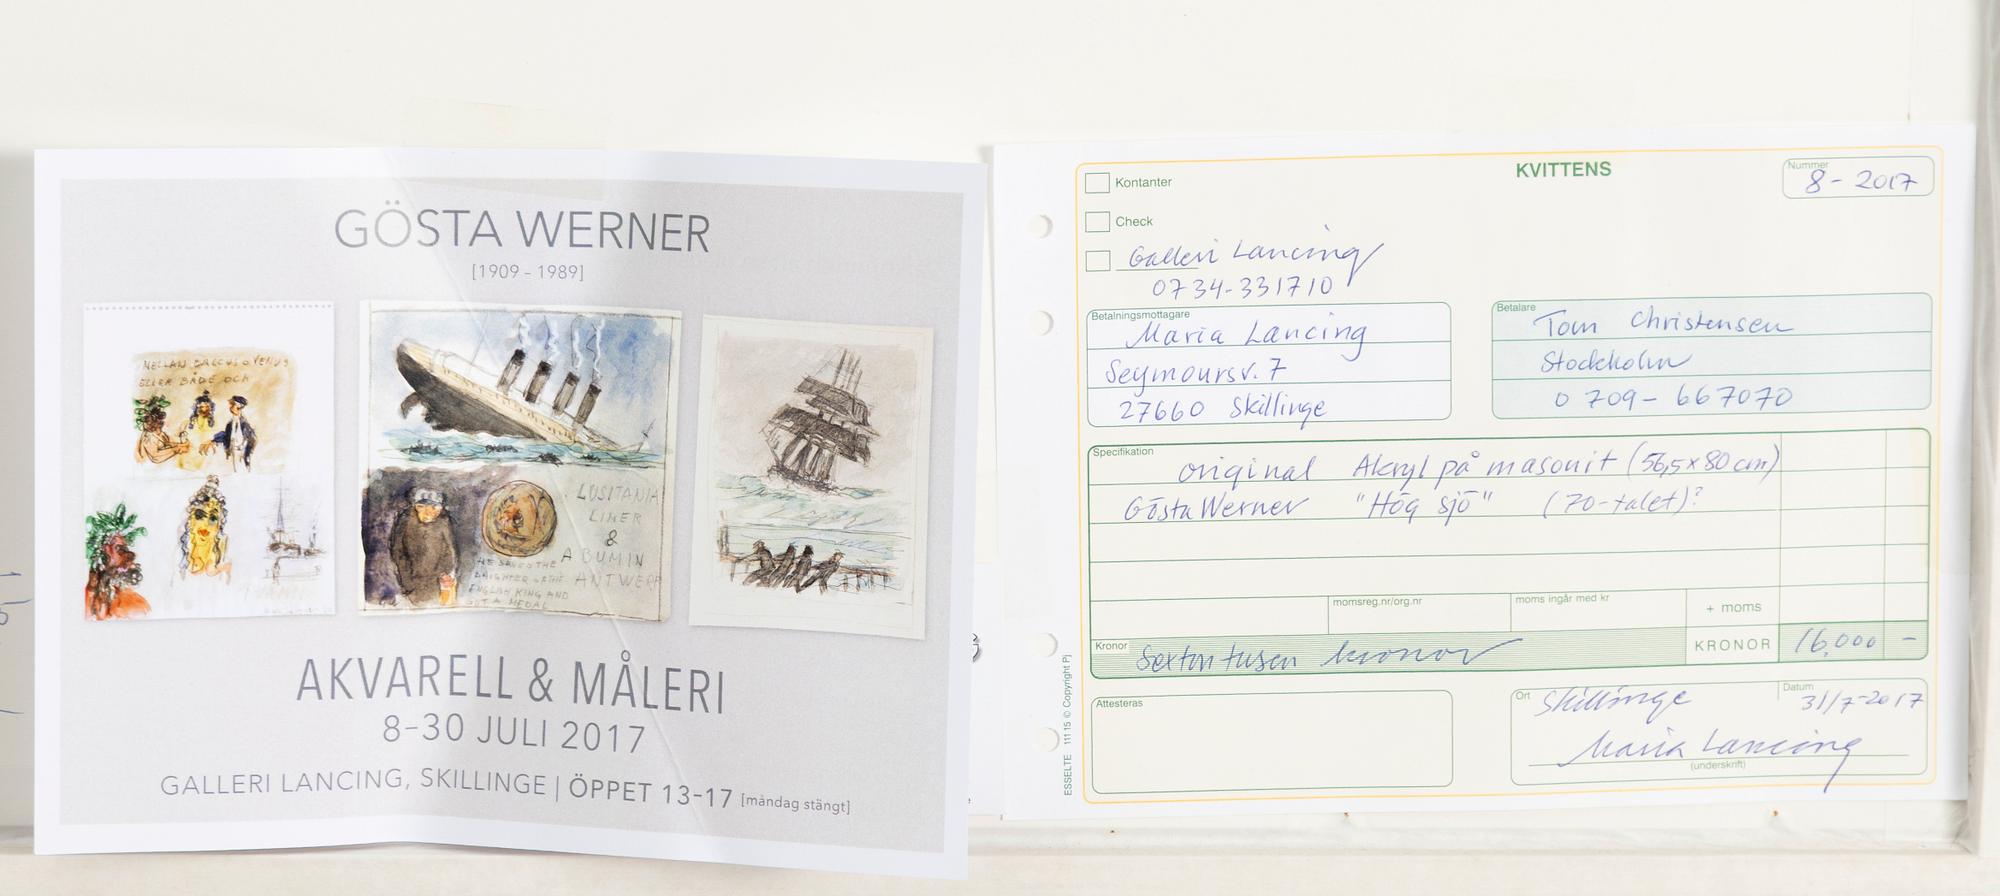 GÖSTA WERNER
[1909 - 1989]
MELLAN BACCUS o VENUS
ELLER BÅDE OCH
LUSITANIA
LINER
&
A BUM IN
ANTWERP
HE SAVED THE
DAUGHTER OF THE
ENGLISH KING AND
GOT A MEDAL
AKVARELL & MÅLERI
8–30 JULI 2017
GALLERI LANCING, SKILLINGE | ÖPPET 13–17 [måndag stängt]
KVITTENS
Nummer
8 - 2017
Kontanter
Check
Galleri Lancing
0734-331710
Betalningsmottagare
Maria Lancing
Seymoursv. 7
27660 Skillinge
Betalare
Tom Christensen
Stockholm
0709-667070
Specifikation
original Akryl på masonit (56,5 x 80 cm)
Gösta Werner "Hög sjö" (70-talet)?
momsreg.nr/org.nr
moms ingår med kr
+ moms
Kronor
Sexton tusen kronor
KRONOR
16.000 -
Attesteras
Ort
Skillinge
Datum
31/7-2017
Maria Lancing
(underskrift)
ESSELTE 111 15 © Copyright Pj